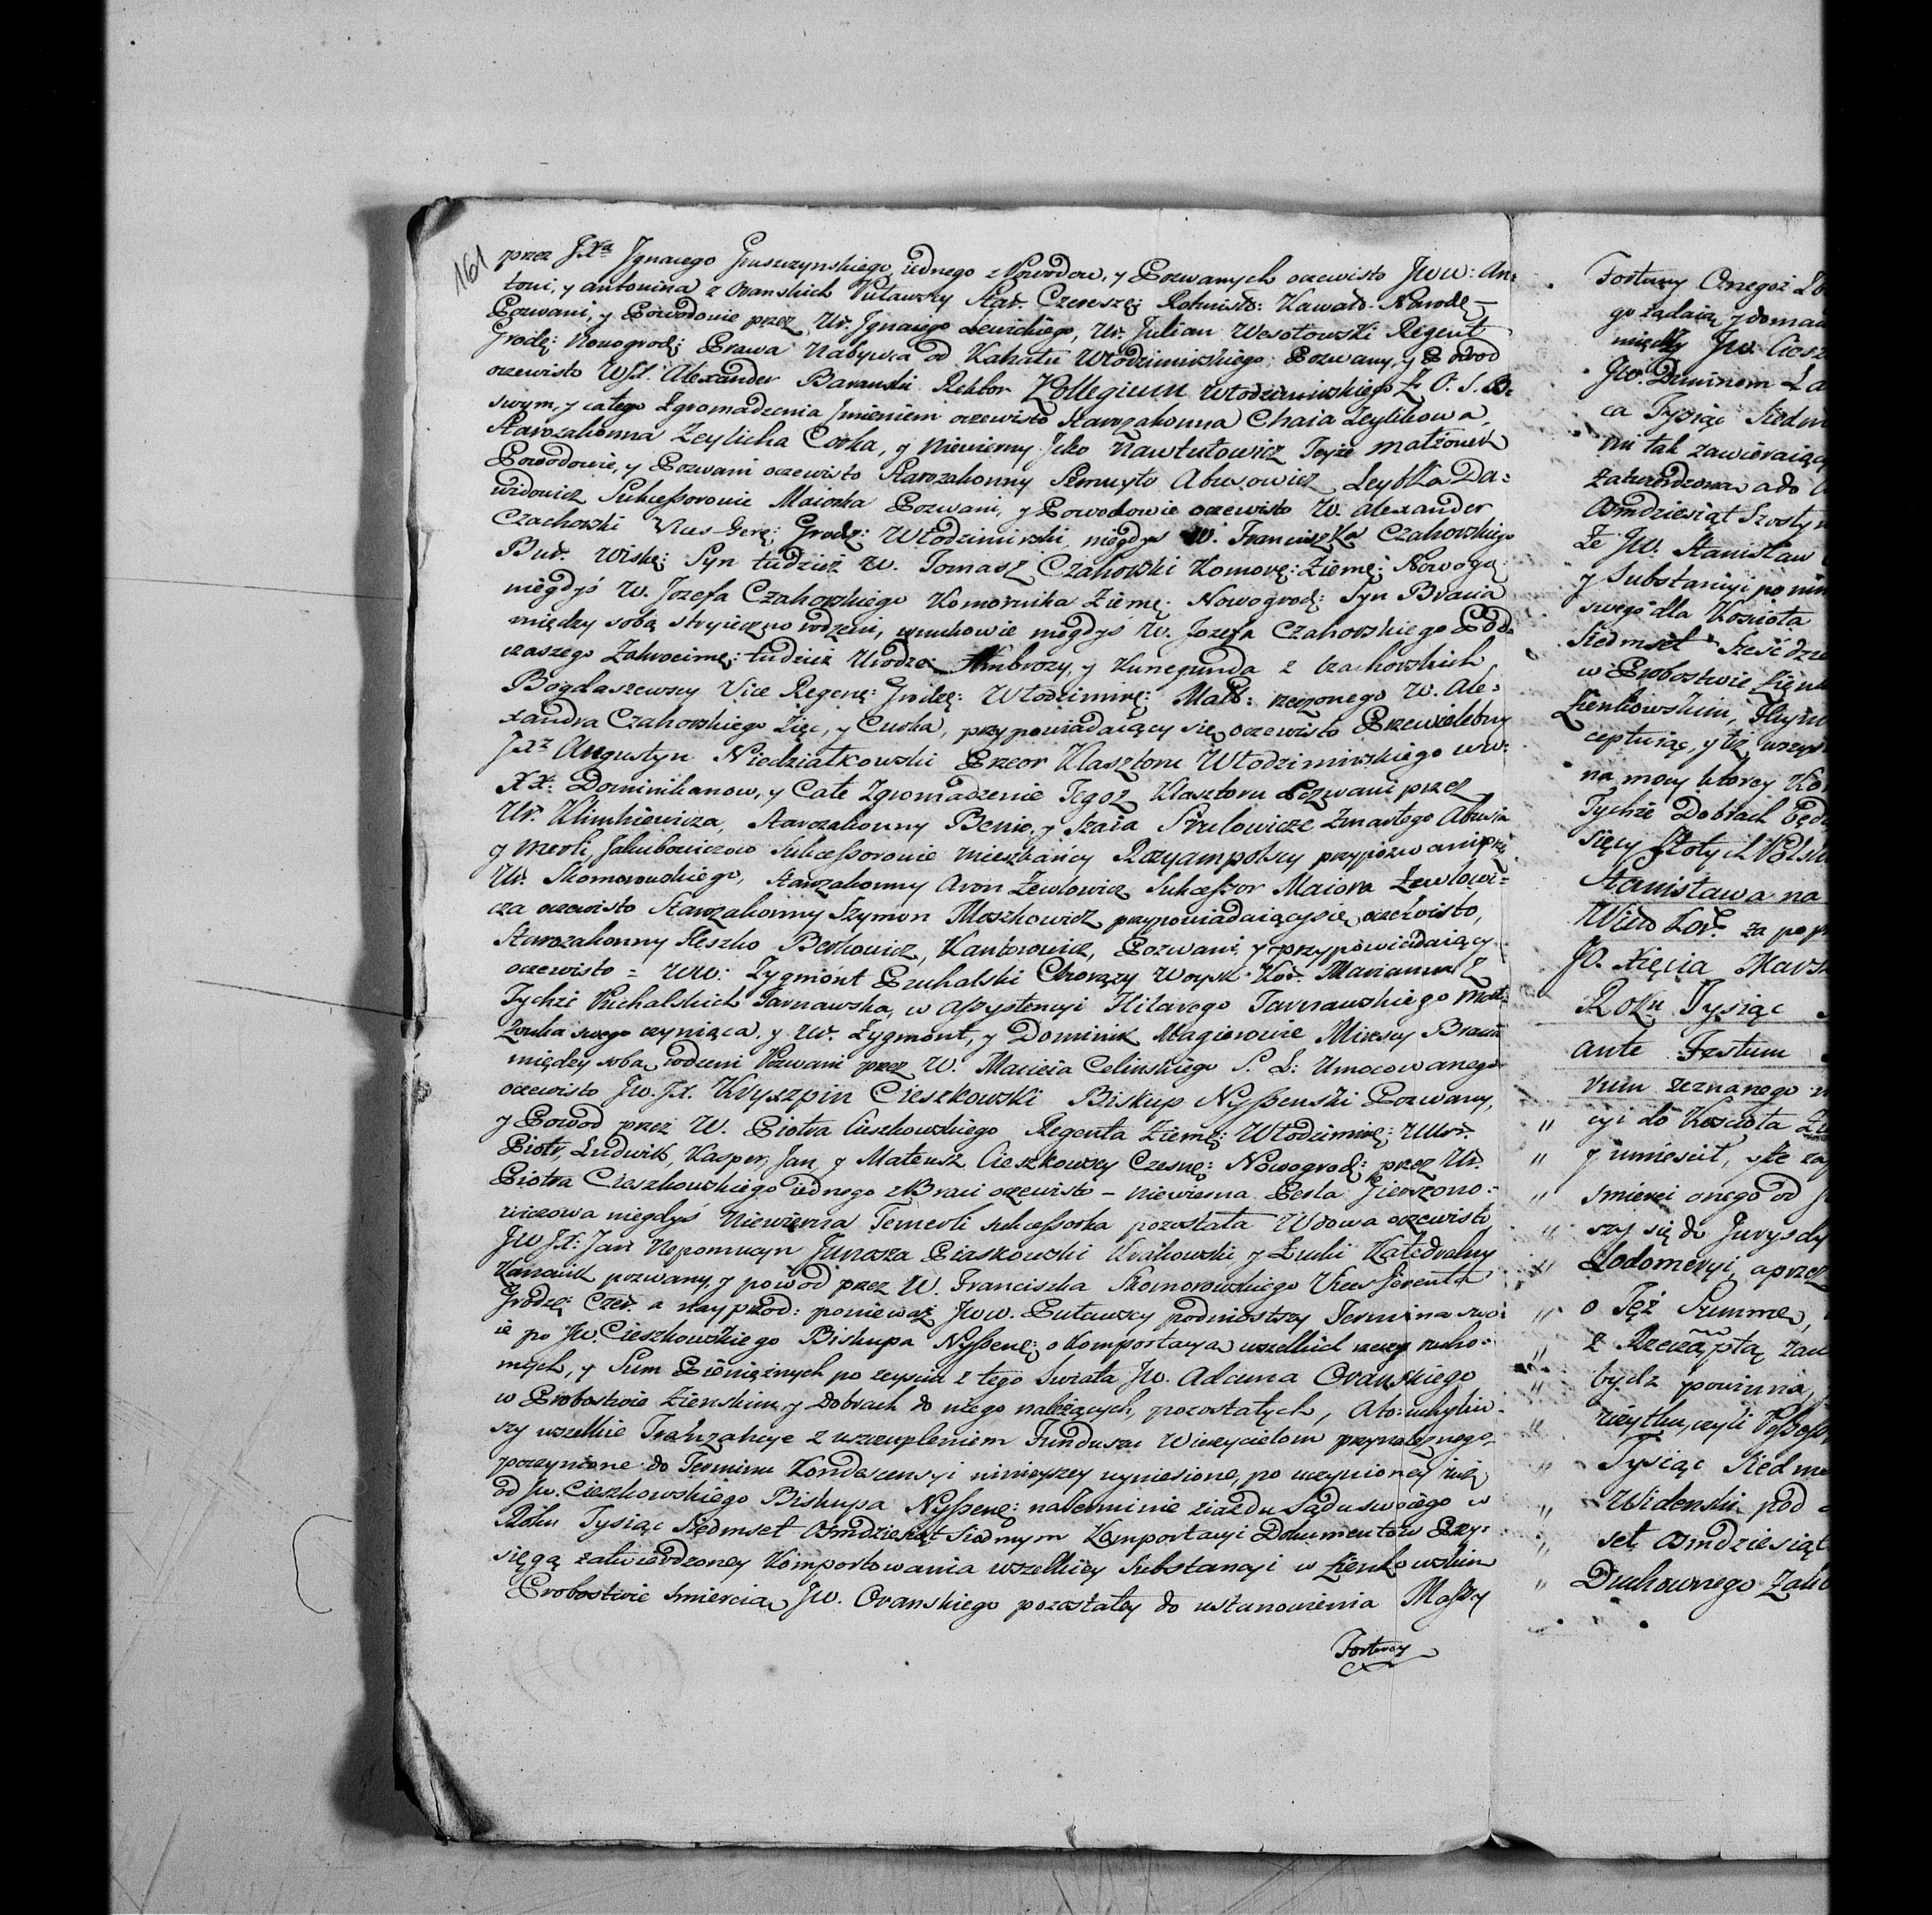 161
przez JXa Jgnacego Gruszczynskiego jednego z Powodow, y Pozwanych oczewisto Jww: An:
toni, y Antonina z Oranskich Puławscy Star. Czereszę: Rotmistr: Kawałe. Narodę
Pozwani, y Powodowie przez Ur. Jgnacego Lewickiego, Ur. Julian Wesołowski Regent
Grodę: Nowogrodę: Prawa Nabywca od Kahału Włodzimirskiego Pozwany, y Powod
oczewisto WJX. Alexander Baranski Rektor Kollegium Włodzimirskiego Z. O. S. B:
swym, y całego Zgromadzenia Jmieniem oczewisto Starozakonna Chaia Zeylikowa,
Starozakonna Zeylicha Corka, y Niewierny Jcko Nawtułowicz Teyże małżonek
Powodowie, y Pozwani oczewisto Starozakonny Szmuyło Abusowicz Leybka Da=
widowicz Sukcessorowie Maiorka Pozwani, y Powodowie oczewisto W. Alexander
Czachowski Vices Gerę: Grodz: Włodzimirski niegdyś W. Franciszka Czahowskiego
Bur. Wiskę: Syn tudzież W. Tomasz Czahowski Komorę: Ziemę: Nowogę
niegdyś W. Jozefa Czahowskiego Komornika Ziemę: Nowogrodę: Syn Bracia
między sobą stryieczno rodzeni, wnukowie niegdyś W. Jozefa Czahowskiego Pod=
czaszego Zakrocimę: tudzież Urodze: Ambrozy, y Kunegunda z Czachowskich
Bogdaszewscy Vice Regenę: Grodzę: Włodzimirę: Małż: rzeczonego W. Ale=
xandra Czahowskiego Zięc, y Curka, przypowiadaiący się oczewisto Przewielebny
JXz Augustyn Niedziałkowski Przeor Klasztoru Włodzimirskiego ww:
XX: Dominikanow, y Całe Zgromadzenie Tegoż Klasztoru Pozwani przez
Ur. Klimkiewicza, Starozakonny Benio, y Szaia Srulowicze Zmarłego Abusia
y Merli Jakubowiczow Sukcessorowie mieszkańcy Rozyampolscy przypozwani prze
Ur. Skomorowskiego, Starozakonny Aron Zewlowicz Sukcessor Maiora Zewlowi=
cza oczewisto Starozakonny Szymon Moszkowicz przypowiadaiący się oczewisto,
Starozakonny Heszko Berkowicz, Kantorowicz, Pozwani y przypowiadaiący
oczewisto = WW: Zygmónt Pruhalski Chorąży Woysk Kor. Marianna z
Tychże Puchalskich Tarnawska, w Assystencyi Hilarego Tarnawskiego Mał=
żonka swego czyniąca, y Ur. Zygmont, y Dominik Magierowie Mirscy Bracia
między sobą rodzeni Pozwani przez W. Macieia Celinskiego P. L: Umocowanego
oczewisto Jw. JX. Kryszpin Cieszkowski Biskup Nyssenski Pozwany,
y Powod przez W. Piotra Cieszkowskiego Regenta Ziemę: Włodzimirę: Uur.
Piotr, Ludwik, Kasper, Jan, y Mateusz Cieszkowscy Czesnę: Nowogrodę: przez Ur.
Piotra Cieszkowskiego iednego z Braci oczewisto – niewierna Perla Gierszono=
wiczowa niegdyś Niewierna Temerli sukcessorka pozostała Wdowa oczewisto
Jw JX: Jan Nepomucyn Junosza Piaskowski Krakowski, y Łucki Katedralny
Kanonik pozwany, y powod przez W. Franciszka Skomorowskiego Vices Gerenta
Grodzę: Czer. a nayprzod: ponieważ Jww. Puławscy podniosłszy Termina swo:
ie po Jw. Cieszkowskiego Biskupa Nyssenę: o komportacyą wszelkich rzeczy rucho=
mych, y Sum Pieniężnych po zeyściu z tego Swiata Jw. Adama Oranskiego
w Probostwie Zienskim, y Dobrach do niego należących, pozostałych, Ato: uchyliw=
szy wszelkie Tranzakcye z uszczupleniem Funduszu Wierzycielom przynależnego
poczynione do Terminu Kondescensyi ninieyszey wyniesione, po uczynioney iuż
od Jw. Cieszkowskiego Biskupa Nyssenę: na Terminie ziazdu Sądu swoiego w
Roku Tysiąc Siedmset Osmdziesiąt Siodmym Komportacyi Dokumentow Przy=
sięgą zatwierdzoney Komportowania wszelkiey Substancyi w Zienkowskim
Probostwie Smiercią Jw. Oranskiego pozostałey do ustanowienia Massy
Fortuny
Fortuny Onegoż
go żądaią, y domaw
między Jw. Ciesz
Jw. Duninem
ca Tysiąc Siedm
mi tak zawieraiącą
zatwierdzona, a do
Osmdziesiąt Szosty
Że Jw. Stanisław
y Substancyi po nim
swego dla Kościoła
Siedmset Sześćdzie
w Probostwie
Zienkowskim,
ceptuiąc, y tż wszys
na mocy ktorey
Tychże Dobrach
sięcy Złotych Polsk
Stanisława na
Wielo Kor. za pop
Jo. Xięcia Mars
Roku Tysiąc
ante Festum
rum zeznanego
cyi do Kościoła
y umieścił, że za
smierci onego od
szy się do Jurysdy
Lodomeryi, a przez
o Też Summę,
z Rzecząptą zaw
bydz powinna,
użytku, czyli
Tysiąc Siedm
Widenski pod
set Osmdziesiąt
Duchownego